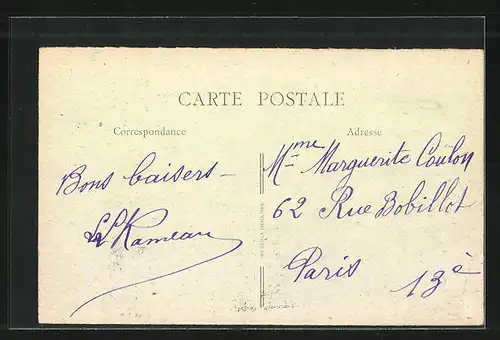 CARTE POSTALE
Correspondance
Adresse
Bons baisers –
Rameau
Mme Marguerite Coulon
62 Rue Bobillot
Paris 13è